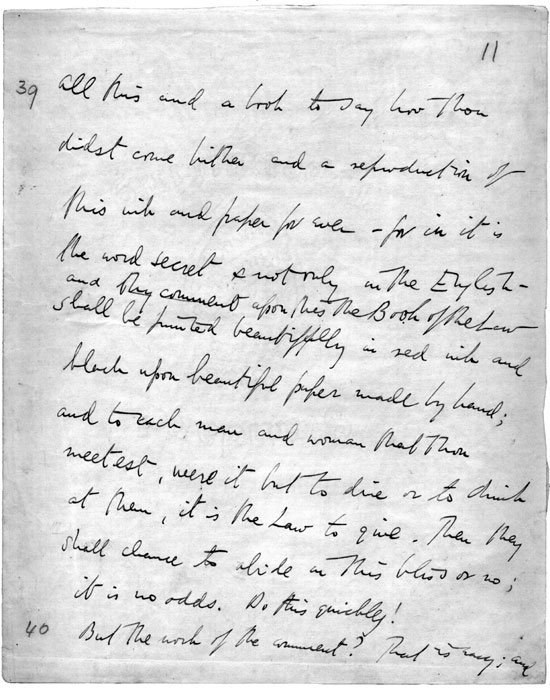 11
39 all this and a book to say how thou
didst come hither and a reproduction of
this ink and paper for ever - for in it is
the word secret & not only in the English -
and thy comment upon this the Book of the Law
shall be printed beautifully in red ink and
black upon beautiful paper made by hand;
and to each man and woman that thou
meetest, were it but to dine or to drink
at them, it is the Law to give. Then they
shall chance to abide in this bliss or no;
it is no odds. Do this quickly!
40 But the work of the comment? That is easy; and